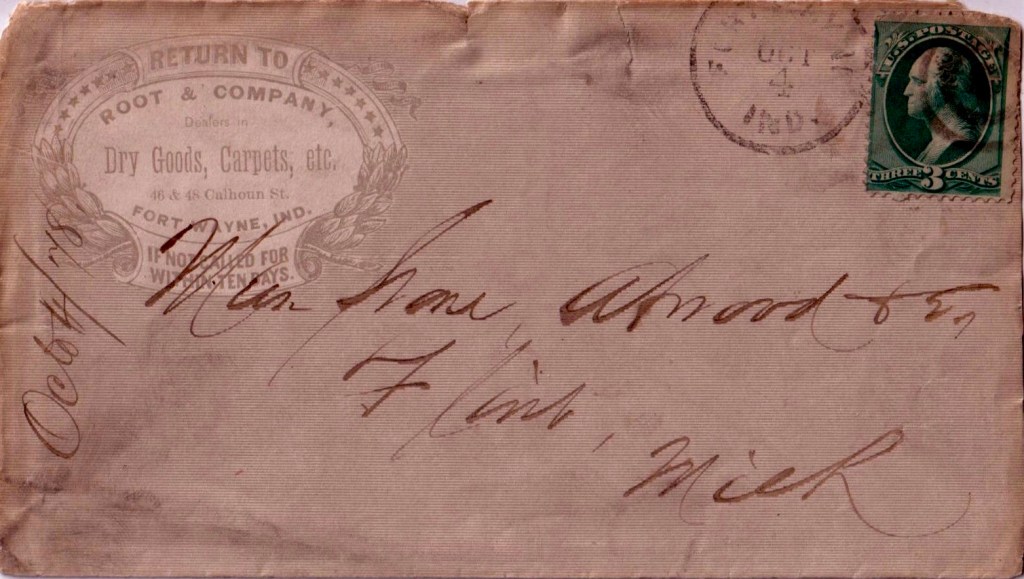 RETURN TO
ROOT & COMPANY,
Dealers in
Dry Goods, Carpets, etc.
46 & 48 Calhoun St.
FORT WAYNE, IND.
IF NOT CALLED FOR
WITHIN TEN DAYS.
OCT
4
IND.
U.S. POSTAGE
THREE 3 CENTS
Oct 4/78
Stone, Atwood & Co,
Flint,
Mich